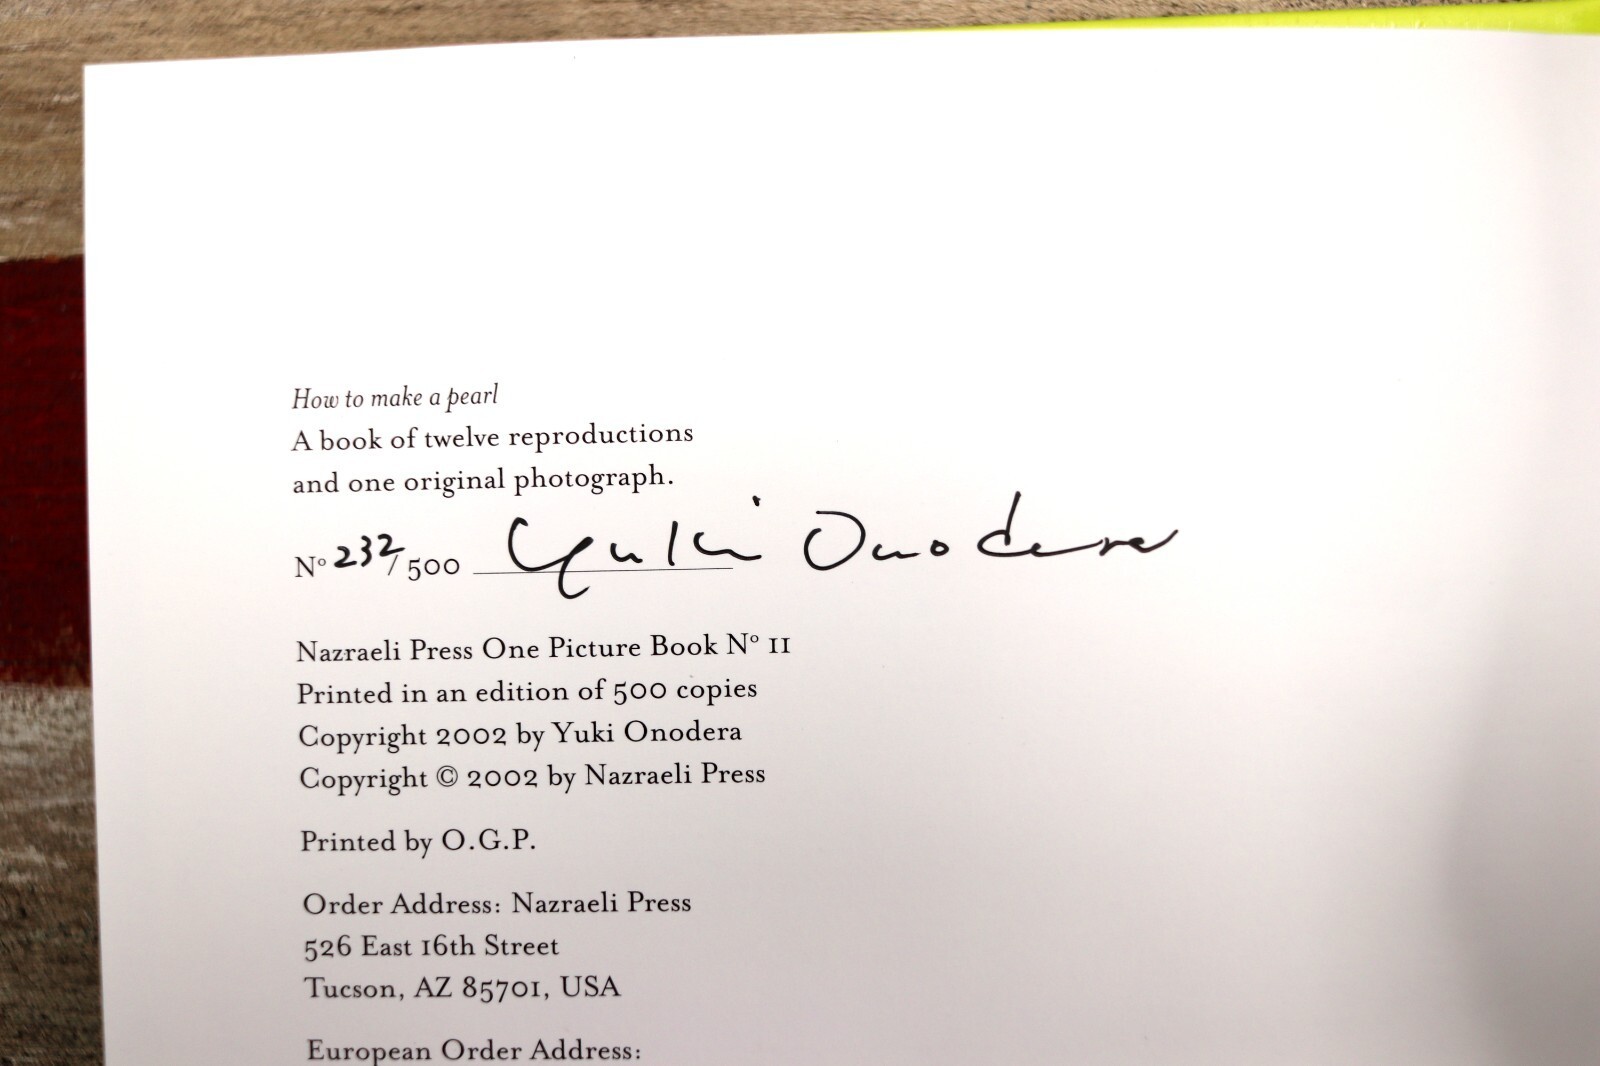 How to make a pearl
A book of twelve reproductions
and one original photograph.
Nº 232/500 Yuki Onodera
Nazraeli Press One Picture Book Nº 11
Printed in an edition of 500 copies
Copyright 2002 by Yuki Onodera
Copyright © 2002 by Nazraeli Press
Printed by O.G.P.
Order Address: Nazraeli Press
526 East 16th Street
Tucson, AZ 85701, USA
European Order Address: